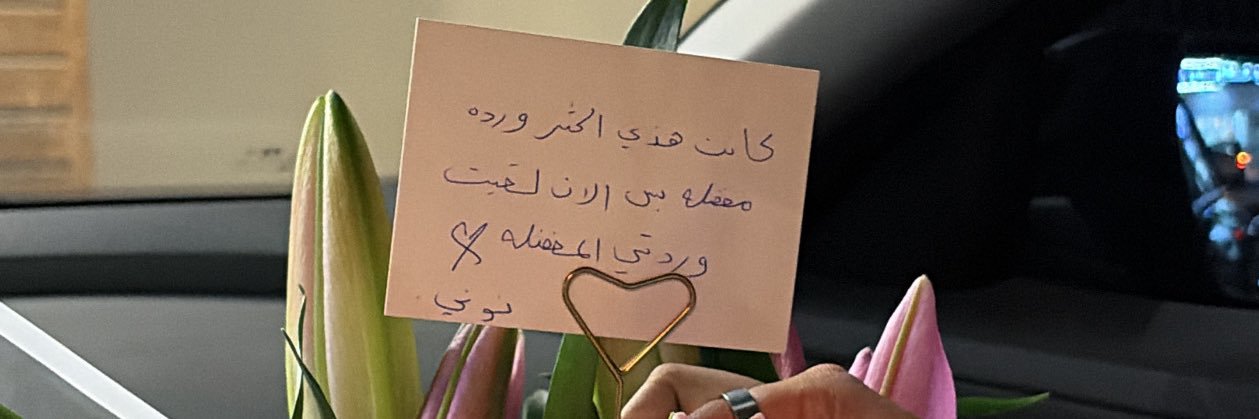 كانت هذي اكثر ورده
مفضله بس الان لقيت
وردتي المفضله
نوني